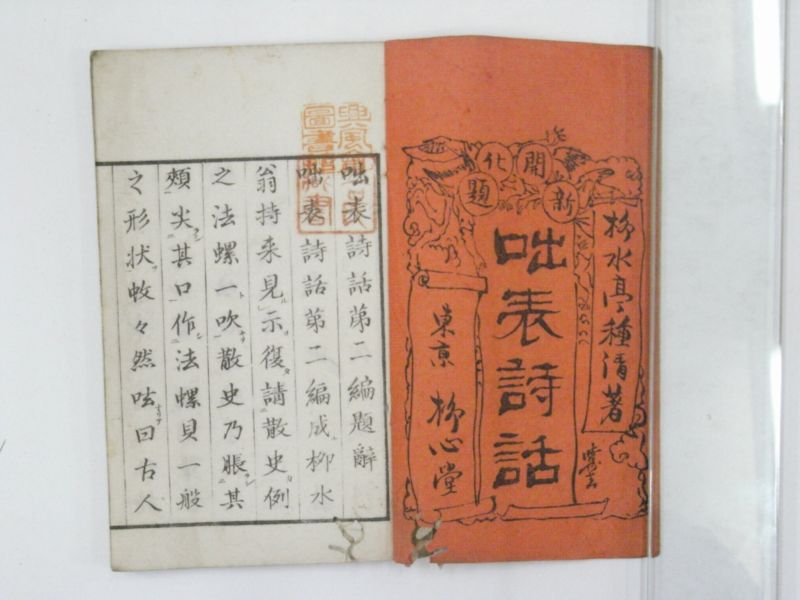 開化新題
柳水亭種清著
咄表詩話
東京 柳心堂
咄表詩話第二編題辭
咄表詩話第二編成柳水
翁持来見示復請散史例
之法螺一吹散史乃脹其
頰尖其口作法螺貝一般
之形状
然呿曰古人